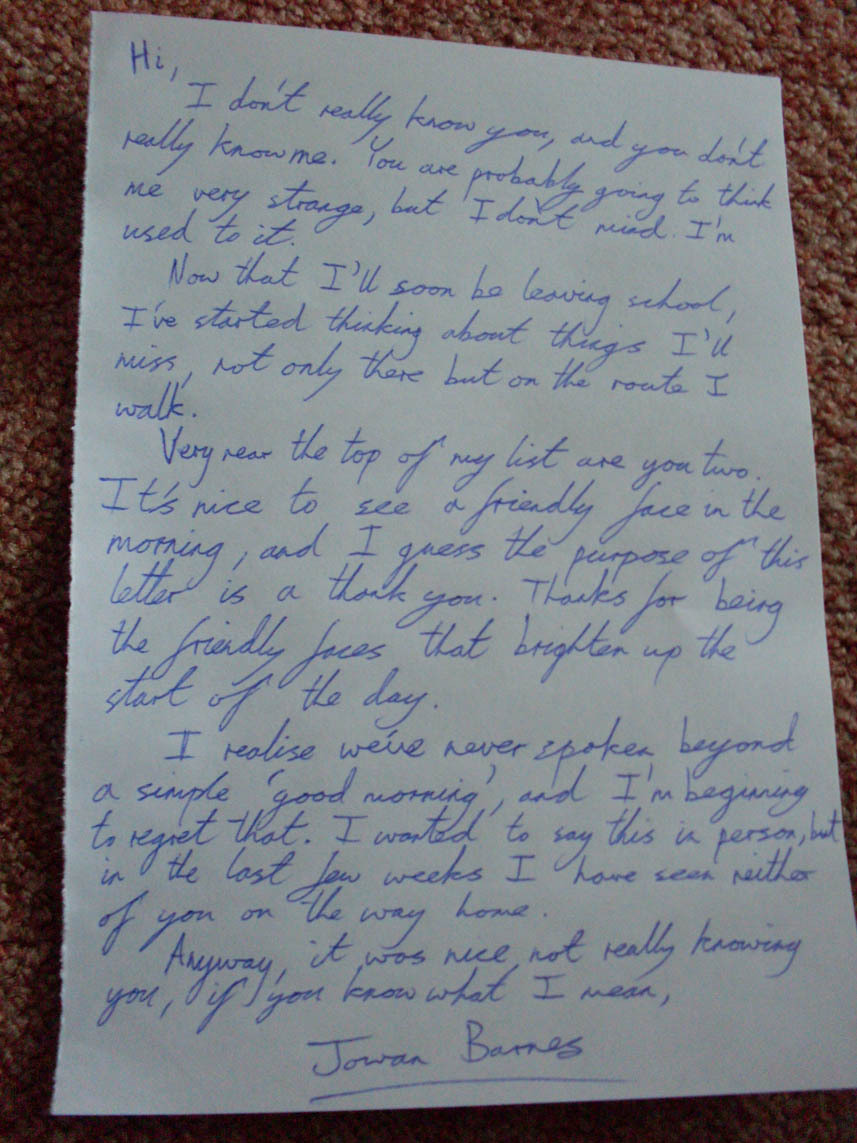 Hi,
I don't really know you, and you don't
really know me. You are probably going to think
me very strange, but I don't mind. I'm
used to it.
Now that I'll soon be leaving school,
I've started thinking about things I'll
miss, not only there but on the route I
walk.
Very near the top of my list are you two.
It's nice to see a friendly face in the
morning, and I guess the purpose of this
letter is a thank you. Thanks for being
the friendly faces that brighten up the
start of the day.
I realise we've never spoken beyond
a simple 'good morning', and I'm beginning
to regret that. I wanted to say this in person, but
in the last few weeks I have seen neither
of you on the way home.
Anyway, it was nice not really knowing
you, if you know what I mean,
Jowan Barnes